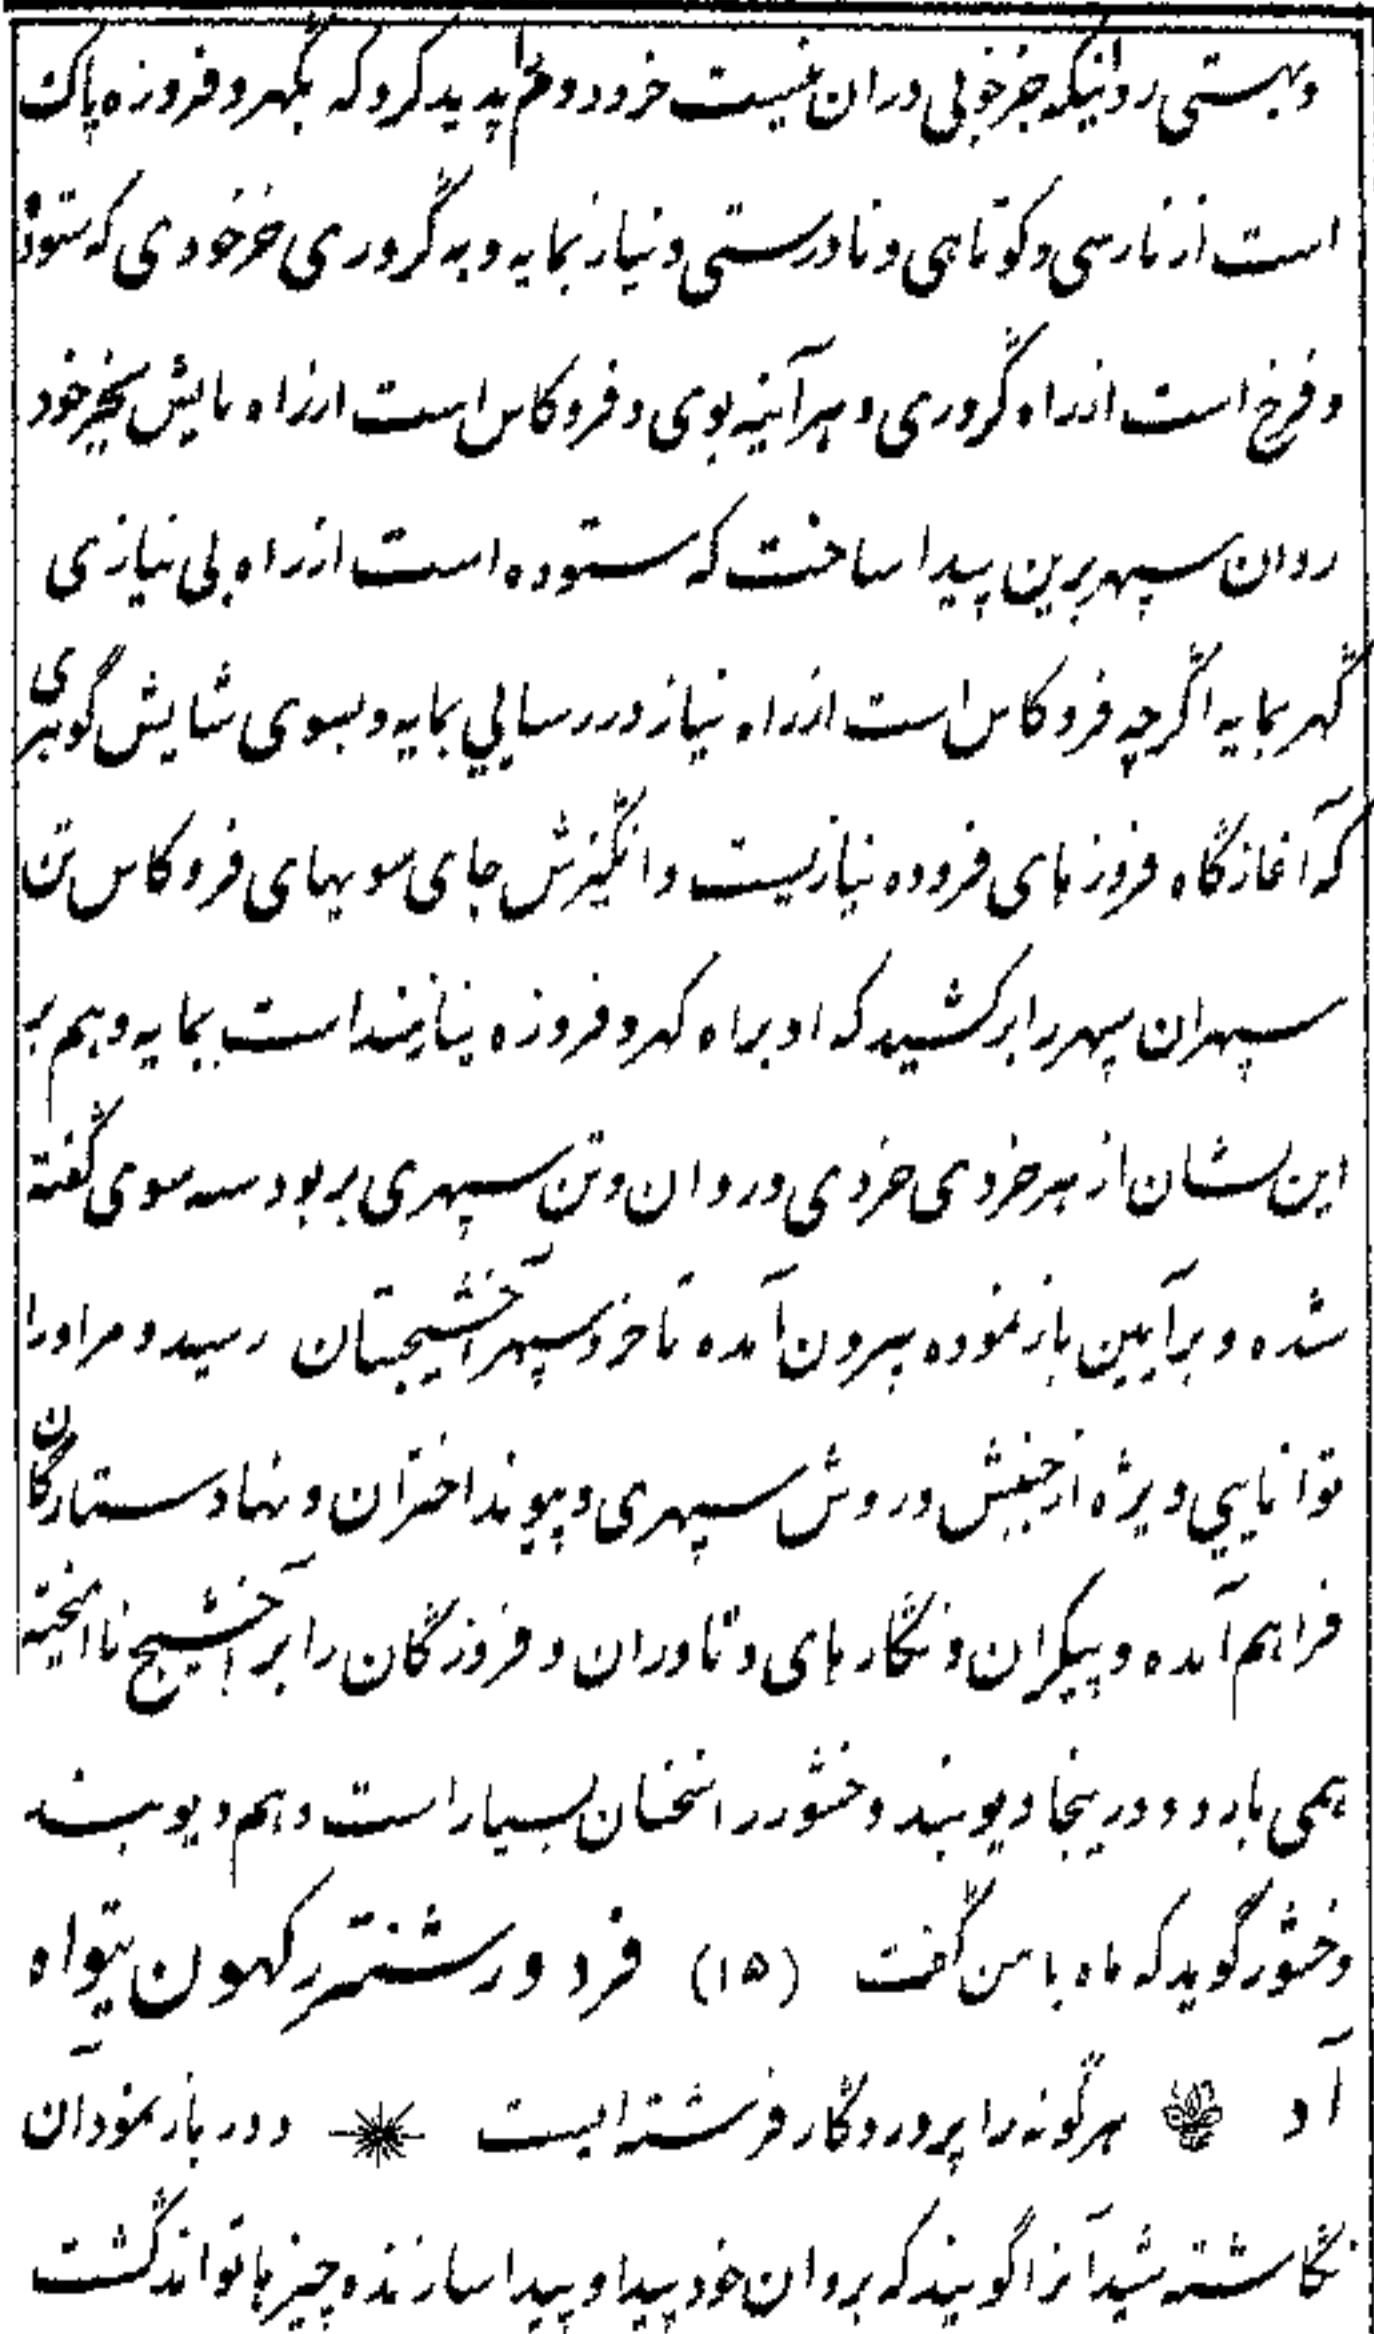 وبهستی روانیکه جز خوبی دران نیست خرد دوم پدید کرد که بگهر و فروزه پاک
است از نارسی و کوتاهی و نادرستی و نیاز بمایه و به گروری خرخودی که ستوده
و فرخ است از راه گروری و هرآئینه بوی و فروکاس است از راه مایش بخیر خود
روان سپهر برین پیدا ساخت که ستوده است از راه بی نیازی
گهر بمایه اگرچه فروکاس است از راه نیاز در رسایی بمایه و بسوی شایش گوهری
که آغازگاه فروزهای فروده نیازیست و انگیزش جای سویهای فروکاس تن
سپهران سپهر را برکشید که او براه گهر و فروزه نیازمند است بمایه و هم بر
این نشان از هر خردی خردی و روان و تن سپهری بر بود سه سوی گفته
شده و بر آیین باز نموده بیرون آمده تا خرد سپهر آخشیجستان رسید و مر او را
توانایی ویژه از جنبش و روش سپهری و پیوند اختران و نهاد ستارگان
فراهم آمده و پیکران و نگارهای و تاوران و فروزگان را بر آخشیج ناامیخته
همی بارد و درینجا دیوبند و خشور را سخنان بسیار است و هم دیوبند
وخشور گوید که ماه با من گفت (۱۵) فرد ورشنتر رکهون پتواه
آد هرگونه را پروردگار فرشته ایست و در باز نمود آن
نگاشته شید آنرا گویند که بروان خود پیدا و پیدا سازنده چیزها تواند گشت